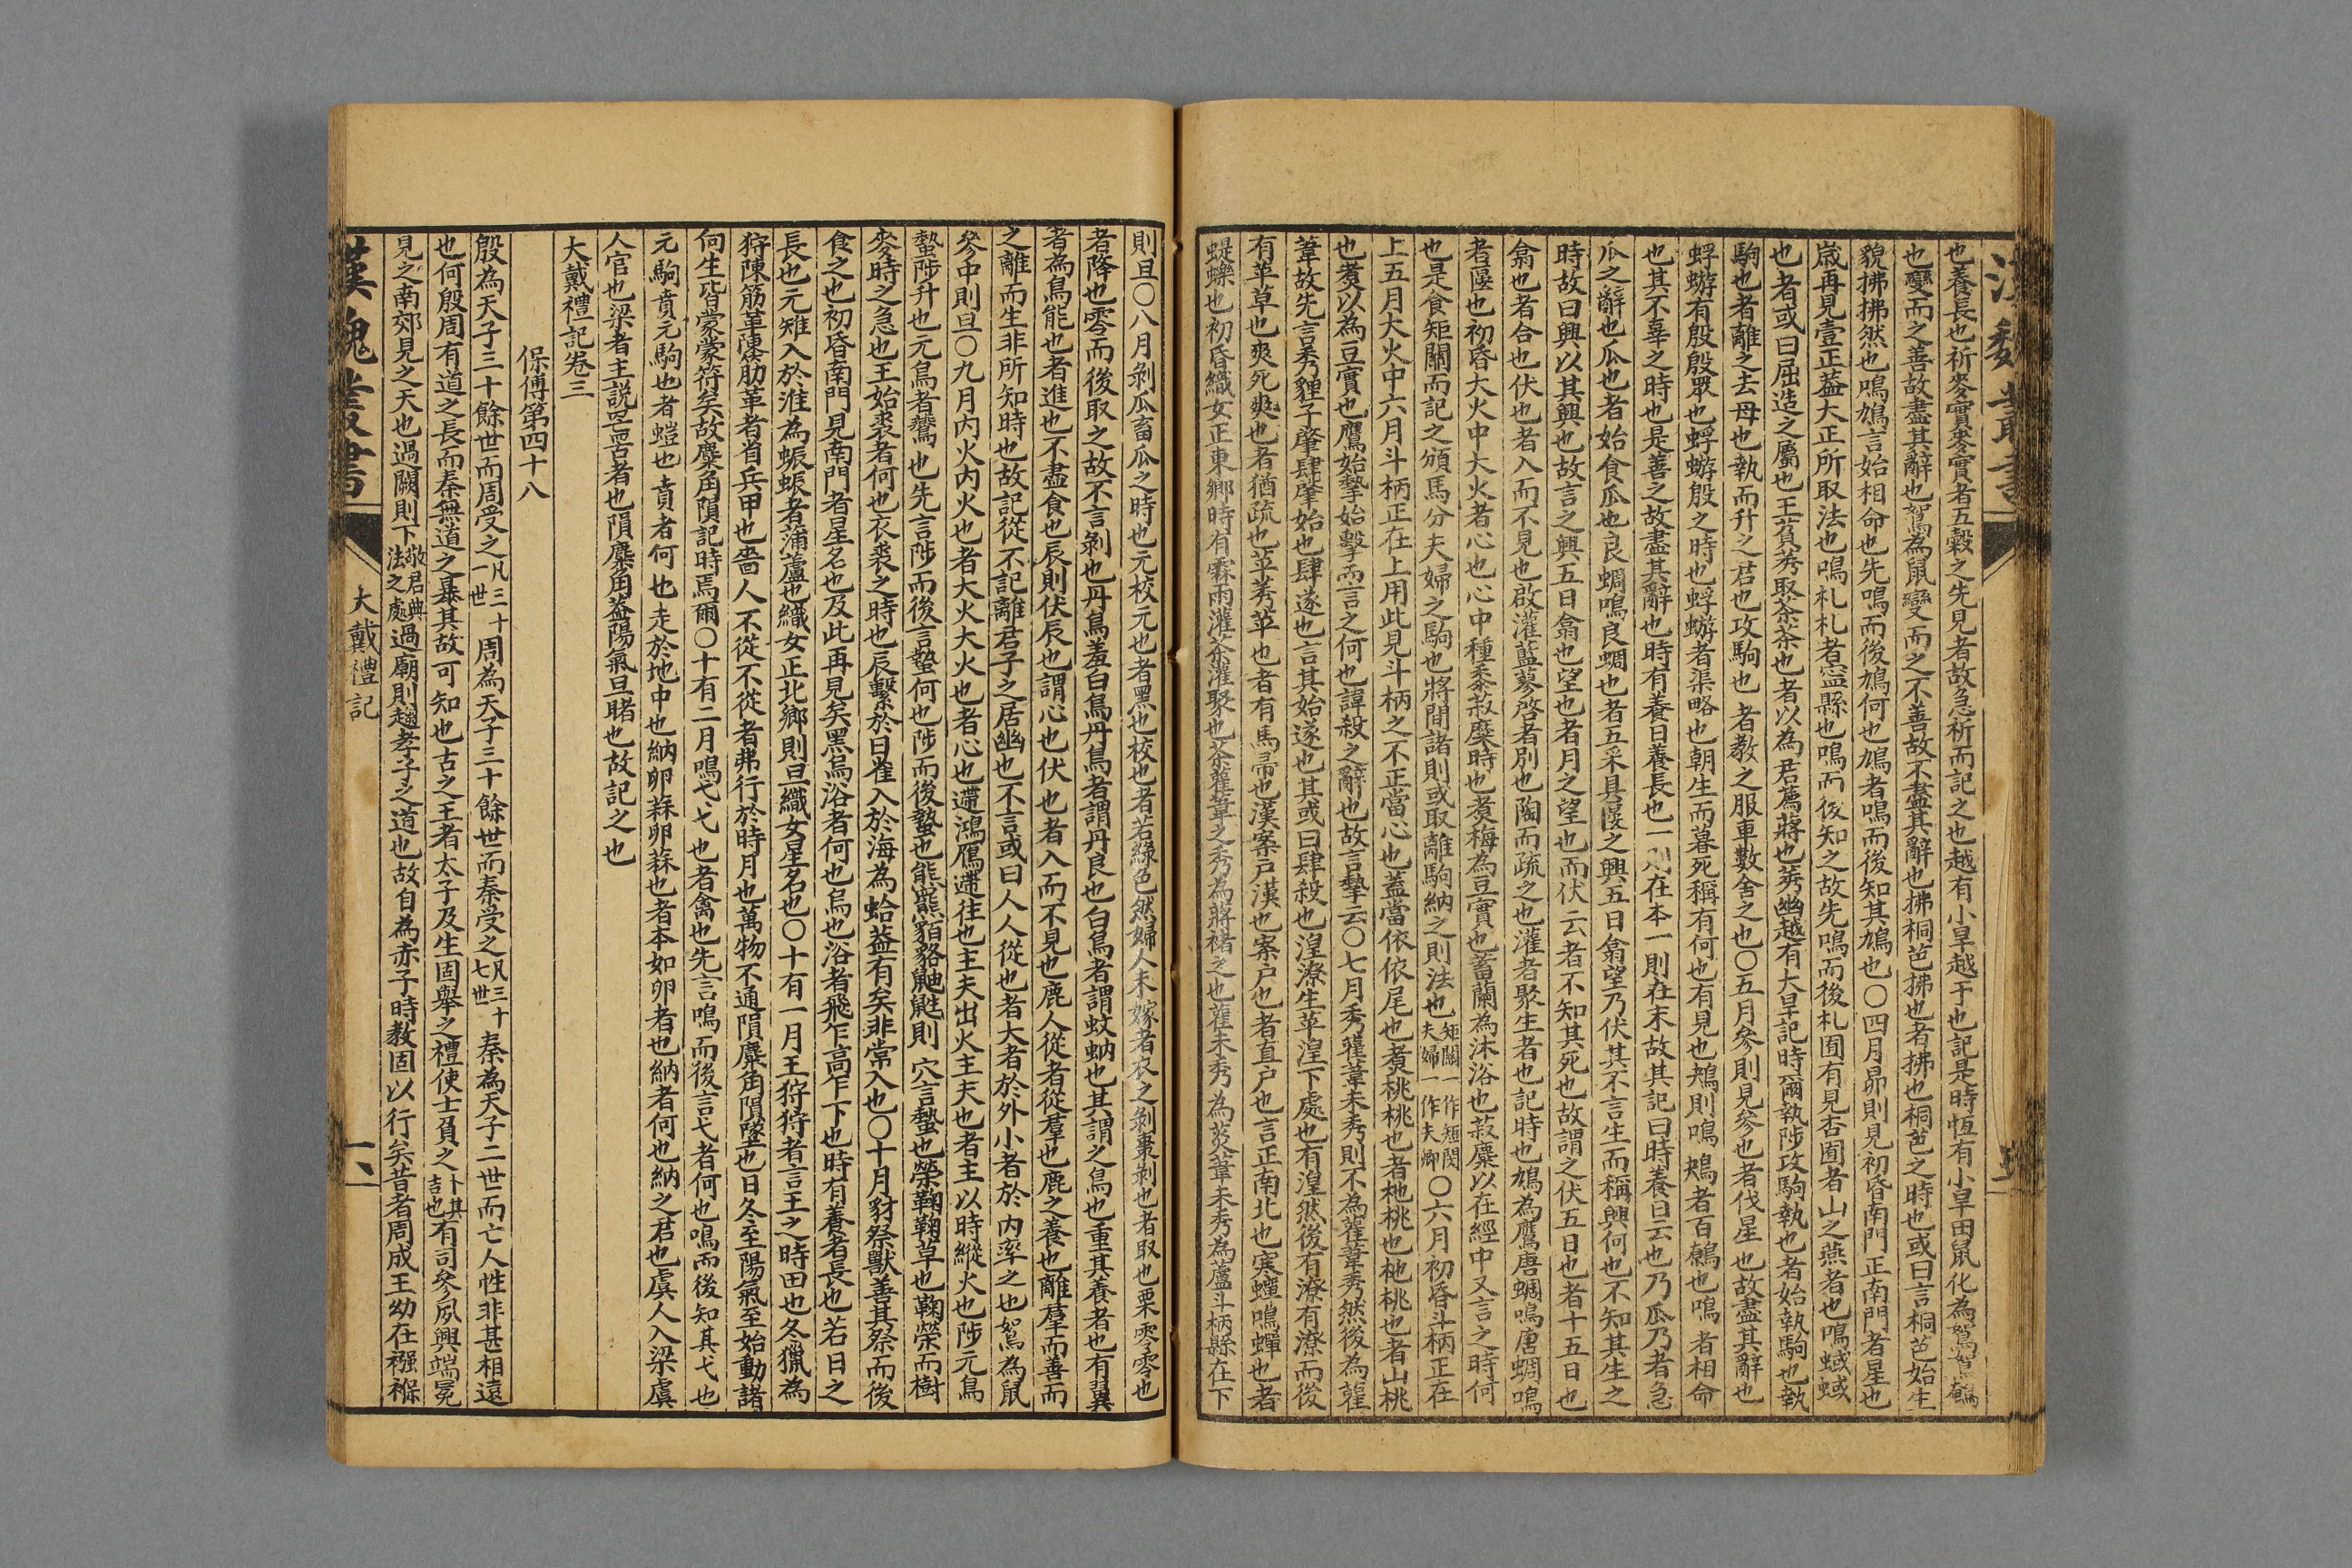 漢魏叢書
也養長也祈麥實麥實者五穀之先見者故急祈而記之也越有小旱越于也記是時恆有小旱田鼠化為鴽鴽鵪
也變而之善故盡其辭也鴽為鼠變而之不善故不盡其辭也拂桐芭拂也者拂也桐芭之時也或曰言桐芭始生
貌拂拂然也鳴鳩言始相命也先鳴而後鳩何也鳩者鳴而後知其鳩也〇四月昴則見初昏南門正南門者星也
歲再見壹正葢大正所取法也鳴札札者寧縣也鳴而後知之故先鳴而後札囿有見杏囿者山之燕者也鳴蜮蜮
也者或曰屈造之屬也王萯莠取荼荼也者以為君薦蔣也莠幽越有大旱記時爾執陟攻駒執也者始執駒也執
駒也者離之去母也執而升之君也攻駒也者教之服車數舍之也〇五月參則見參也者伐星也故盡其辭也
蜉蝣有殷殷眾也蜉蝣殷之時也蜉蝣者渠略也朝生而暮死稱有何也有見也鴂則鳴鴂者百鷯也鳴者相命
也其不辜之時也是善之故盡其辭也時有養日養長也一則在本一則在末故其記曰時養日云也乃瓜乃者急
瓜之辭也瓜也者始食瓜也良蜩鳴良蜩也者五采具匽之興五日翕望乃伏其不言生而稱興何也不知其生之
時故曰興以其興也故言之興五日翕也望也者月之望也而伏云者不知其死也故謂之伏五日也者十五日也
翕也者合也伏也者入而不見也啟灌藍蓼啓者別也陶而疏之也灌者聚生者也記時也鳩為鷹唐蜩鳴唐蜩鳴
者匽也初昏大火中大火者心也心中種黍菽糜時也煮梅為豆實也蓄蘭為沐浴也菽糜以在經中又言之時何
也是食矩關而記之頒馬分夫婦之駒也將閒諸則或取離駒納之則法也矩關一作短閔夫婦一作夫卿〇六月初昏斗柄正在
上五月大火中六月斗柄正在上用此見斗柄之不正當心也蓋當依依尾也煮桃桃也者杝桃也杝桃也者山桃
也煮以為豆實也鷹始摯始摯而言之何也諱殺之辭也故言摯云〇七月秀雚葦未秀則不為雚葦秀然後為雚
葦故先言秀貍子肇肆肇始也肆遂也言其始遂也其或曰肆殺也湟潦生苹湟下處也有湟然後有潦有潦而後
有苹草也爽死爽也者猶疏也苹莠苹也者有馬帚也漢案戶漢也案戶也者直戶也言正南北也寒蟬鳴蟬也者
蝭蠑也初昏織女正東鄉時有霖雨灌荼灌聚也荼雚葦之秀為蔣褚之也雚未秀為菼葦未秀為蘆斗柄縣在下
則旦〇八月剝瓜畜瓜之時也元校元也者黑也校也者若綠色然婦人未嫁者衣之剝棗剝也者取也栗零零也
者降也零而後取之故不言剝也丹鳥羞白鳥丹鳥者謂丹良也白鳥者謂蚊蚋也其謂之鳥也重其養者也有翼
者為鳥能也者進也不盡食也辰則伏辰也謂心也伏也者入而不見也鹿人從者從羣也鹿之養也離羣而善而
之離而生非所知時也故記從不記離君子之居幽也不言或曰人人從也者大者於外小者於內率之也鴽為鼠
參中則旦〇九月內火內火也者大火大火也者心也遰鴻鴈遰往也主夫出火主夫也者主以時縱火也陟元鳥
蟄陟升也元鳥者鷰也先言陟而後言蟄何也陟而後蟄也熊羆貊貉鼬鼪則穴言蟄也榮鞠鞠草也鞠榮而樹
麥時之急也王始裘者何也衣裘之時也辰繫於日雀入於海為蛤葢有矣非常入也〇十月豺祭獸善其祭而後
食之也初昏南門見南門者星名也及此再見矣黑烏浴者何也烏也浴者飛乍高乍下也時有養者長也若日之
長也元雉入於淮為蜃蜃者蒲蘆也織女正北鄉則旦織女星名也〇十有一月王狩狩者言王之時田也冬獵為
狩陳筋革陳筋革者省兵甲也嗇人不從不從者弗行於時月也萬物不通隕麋角隕墜也日冬至陽氣至始動諸
向生皆蒙蒙符矣故麋角隕記時焉爾〇十有二月鳴弋弋也者禽也先言鳴而後言弋者何也鳴而後知其弋也
元駒賁元駒也者螘也賁者何也走於地中也納卵蒜卵蒜也者本如卵者也納者何也納之君也虞人入梁虞
人官也梁者主說罟罟者也隕麋角葢陽氣旦睹也故記之也
大戴禮記卷三
保傅第四十八
殷為天子三十餘世而周受之凡三十一世周為天子三十餘世而秦受之凡三十七世秦為天子二世而亡人性非甚相遠
也何殷周有道之長而秦無道之暴其故可知也古之王者太子及生固舉之禮使士負之卜其吉也有司參夙興端冕
見之南郊見之天也過闕則下敬君典法之處過廟則趨孝子之道也故自為赤子時教固以行矣昔者周成王幼在襁褓
漢魏叢書
大戴禮記